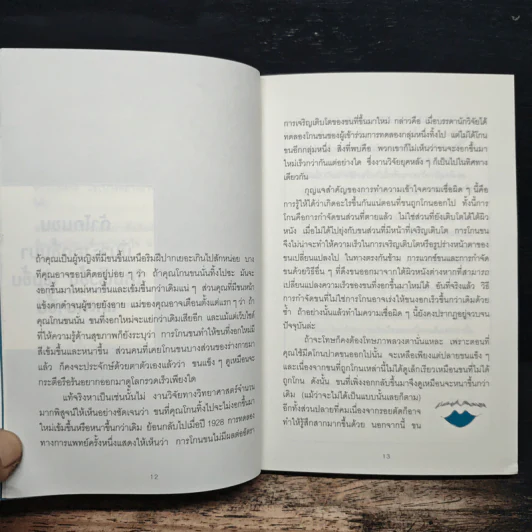 ถ้าคุณเป็นผู้หญิงที่มีขนขึ้นเหนือริมฝีปากเยอะเกินไปสักหน่อย บาง
ทีคุณอาจชอบคิดอยู่บ่อย ๆ ว่า ถ้าคุณโกนขนนั้นทิ้งไปซะ มันจะ
งอกขึ้นมาใหม่หนาขึ้นและเข้มขึ้นกว่าเดิมแน่ ๆ ส่วนคุณที่มีขนหน้า
แข้งดกดำจนผู้ชายยังอาย แม่ของคุณอาจเตือนตั้งแต่แรก ๆ ว่า ถ้า
คุณโกนขนนั่น ขนที่งอกใหม่จะแย่กว่าเดิมเสียอีก และแม้แต่เว็บไซต์
ที่ให้ความรู้ด้านสุขภาพก็ยังระบุว่า การโกนขนทำให้ขนที่งอกใหม่มี
สีเข้มขึ้นและหนาขึ้น ส่วนคนที่เคยโกนขนบางส่วนของร่างกายมา
แล้ว ก็คงจะประจักษ์ด้วยตาตัวเองแล้วว่า ขนแข็ง ๆ ดูเหมือนจะ
กระตือรือร้นอยากออกมาดูโลกรวดเร็วเพียงใด
แท้จริงหาเป็นเช่นนั้นไม่ งานวิจัยทางวิทยาศาสตร์จำนวน
มากพิสูจน์ให้เห็นอย่างชัดเจนว่า ขนที่คุณโกนทิ้งไปจะไม่งอกขึ้นมา
ใหม่เข้มขึ้นหรือหนาขึ้นกว่าเดิม ย้อนกลับไปเมื่อปี 1928 การทดลอง
ทางการแพทย์ครั้งหนึ่งแสดงให้เห็นว่า การโกนขนไม่มีผลต่ออัตรา
12
การเจริญเติบโตของขนที่ขึ้นมาใหม่ กล่าวคือ เมื่อบรรดานักวิจัยได้
ทดลองโกนขนของผู้เข้าร่วมการทดลองกลุ่มหนึ่งทิ้งไป แต่ไม่ได้โกน
ขนอีกกลุ่มหนึ่ง สิ่งที่พบคือ พวกเขาก็ไม่เห็นว่าขนจะงอกขึ้นมา
ใหม่เร็วกว่ากันแต่อย่างใด ซึ่งงานวิจัยยุคหลัง ๆ ก็เป็นไปในทิศทาง
เดียวกัน
กุญแจสำคัญของการทำความเข้าใจความเชื่อผิด ๆ นี้คือ
การรู้ให้ได้ว่าเกิดอะไรขึ้นกันแน่ตอนที่ขนถูกโกนออกไป ทั้งนี้การ
โกนคือการกำจัดขนส่วนที่ตายแล้ว ไม่ใช่ส่วนที่ยังเติบโตได้ใต้ผิว
หนัง เมื่อไม่ได้ไปยุ่งกับขนส่วนที่มีหน้าที่เจริญเติบโต การโกนขน
จึงไม่น่าจะทำให้ความเร็วในการเจริญเติบโตหรือรูปร่างหน้าตาของ
ขนเปลี่ยนแปลงไป ในทางตรงกันข้าม การแวกซ์ขนและการกำจัด
ขนด้วยวิธีอื่น ๆ ที่ดึงขนออกมาจากใต้ผิวหนังต่างหากที่สามารถ
เปลี่ยนแปลงความเร็วของขนที่งอกขึ้นมาใหม่ได้ อันที่จริงแล้ว วิธี
การกำจัดขนที่ไม่ใช่การโกนอาจเร่งให้ขนงอกเร็วขึ้นกว่าเดิมด้วย
ซ้ำ ถ้าอย่างนั้นแล้วทำไมความเชื่อผิด ๆ นี้ยังคงปรากฏอยู่จวบจน
ปัจจุบันล่ะ
ถ้าจะโทษก็คงต้องโทษภาพลวงตานั่นแหละ เพราะตอนที่
คุณใช้มีดโกนปาดขนออกไปนั้น จะเหลือเพียงแต่ปลายขนแข็ง ๆ
และเนื่องจากขนที่ถูกโกนเหล่านี้ไม่ได้ดูเล็กเรียวเหมือนขนที่ไม่ได้
ถูกโกน ดังนั้น ขนที่เพิ่งงอกกลับขึ้นมาจึงดูเหมือนจะหนาขึ้นกว่า
เดิม (แม้ว่าจะไม่ได้เป็นแบบนั้นเลยก็ตาม)
อีกทั้งส่วนปลายที่คมเนื่องจากรอยตัดก็อาจ
ทำให้รู้สึกสากมากขึ้นด้วย นอกจากนี้ ขน
13